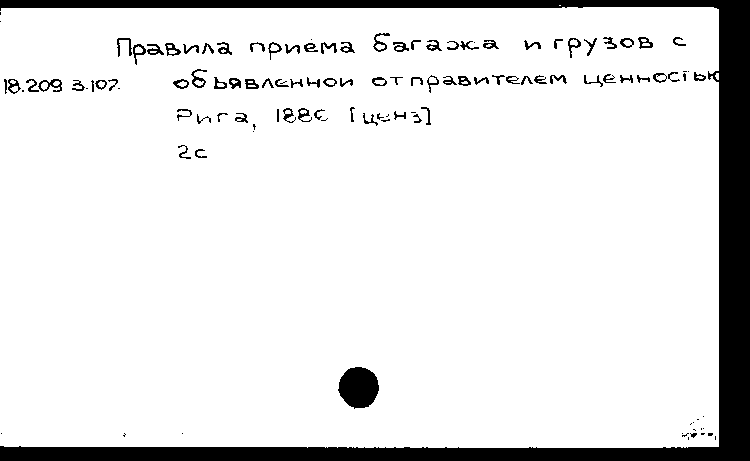 Правила приема багажа и грузов с
18.209 3.107. объявленной отправителем ценностью
Рига, 188 [ценз]
2с